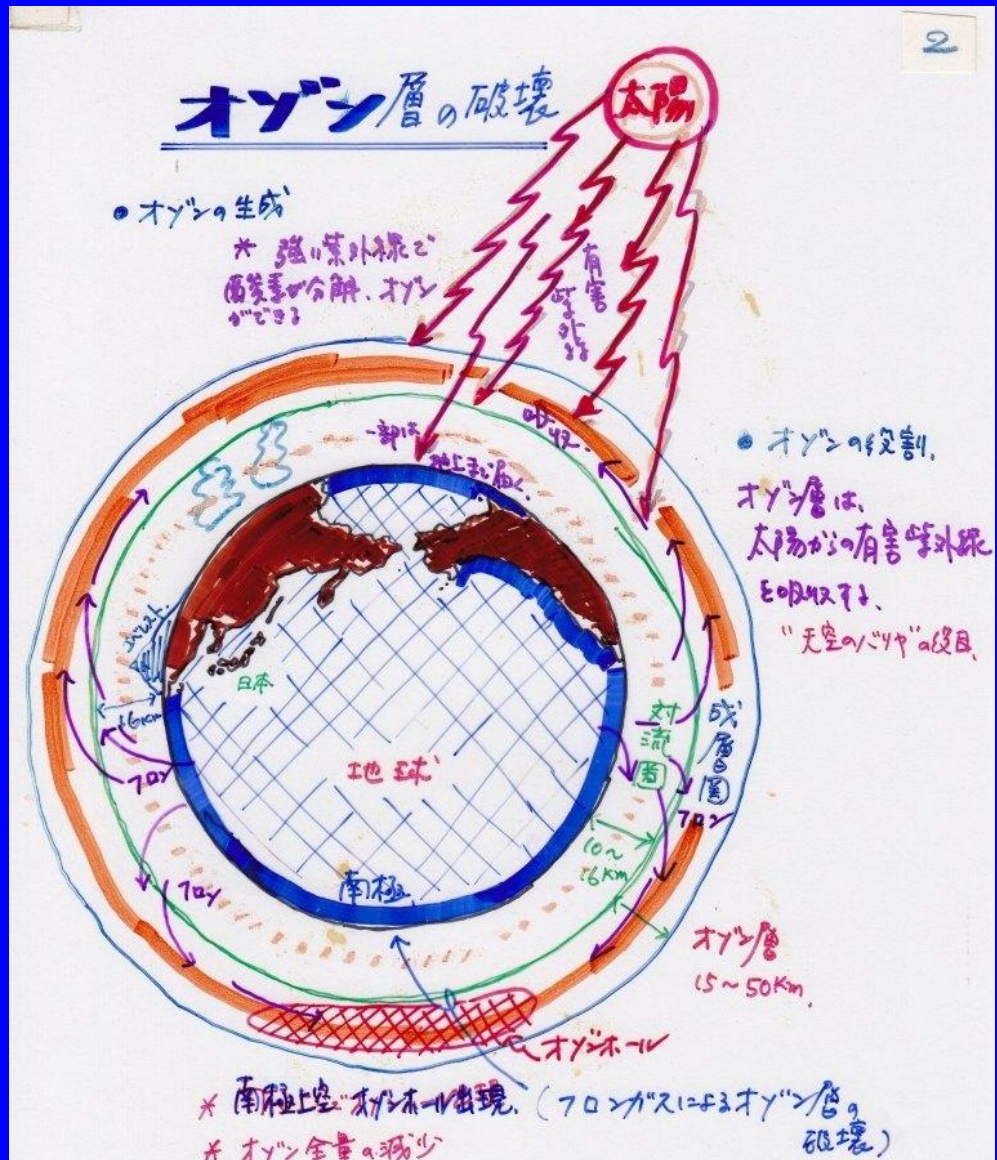 2
オゾン層の破壊
太陽
• オゾンの生成
* 強い紫外線で
酸素が分解、オゾン
ができる
有害
紫外線
吸収
一部は
地上まで届く
• オゾンの役割、
オゾン層は、
太陽からの有害紫外線
を吸収する、
"天空のバリヤ"の役目、
エベレスト
16km
日本
対流圏
成層圏
地球
フロン
フロン
フロン
10~
16km
南極
オゾン層
15~50Km、
オゾンホール
* 南極上空でオゾンホール出現、(フロンガスによるオゾン層の
破壊)
* オゾン全量の減少